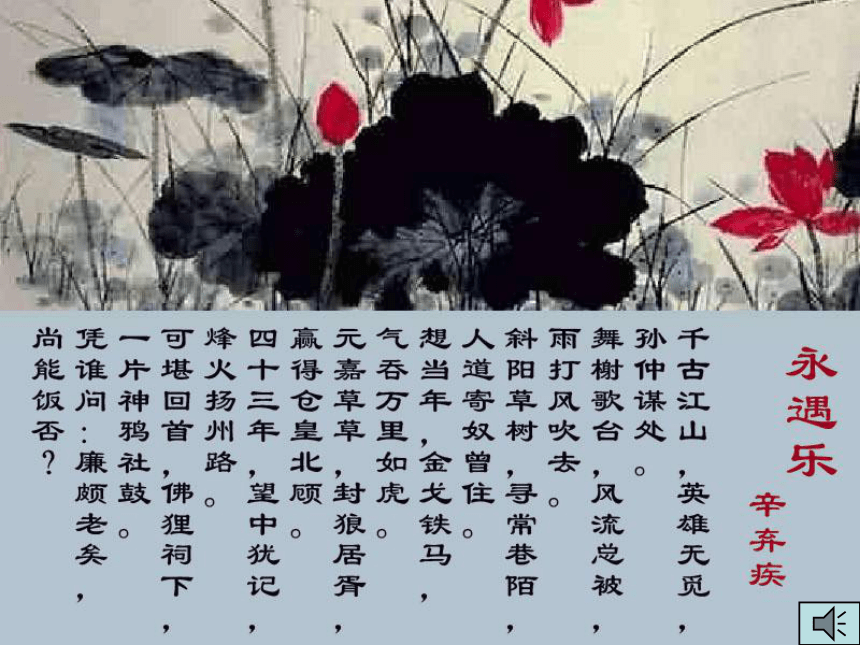 永遇乐
辛弃疾
千古江山,英雄无觅,
孙仲谋处。
舞榭歌台,风流总被,
雨打风吹去。
斜阳草树,寻常巷陌,
人道寄奴曾住。
想当年,金戈铁马,
气吞万里如虎。
元嘉草草,封狼居胥,
赢得仓皇北顾。
四十三年,望中犹记,
烽火扬州路。
可堪回首,佛狸祠下,
一片神鸦社鼓。
凭谁问:廉颇老矣,
尚能饭否?